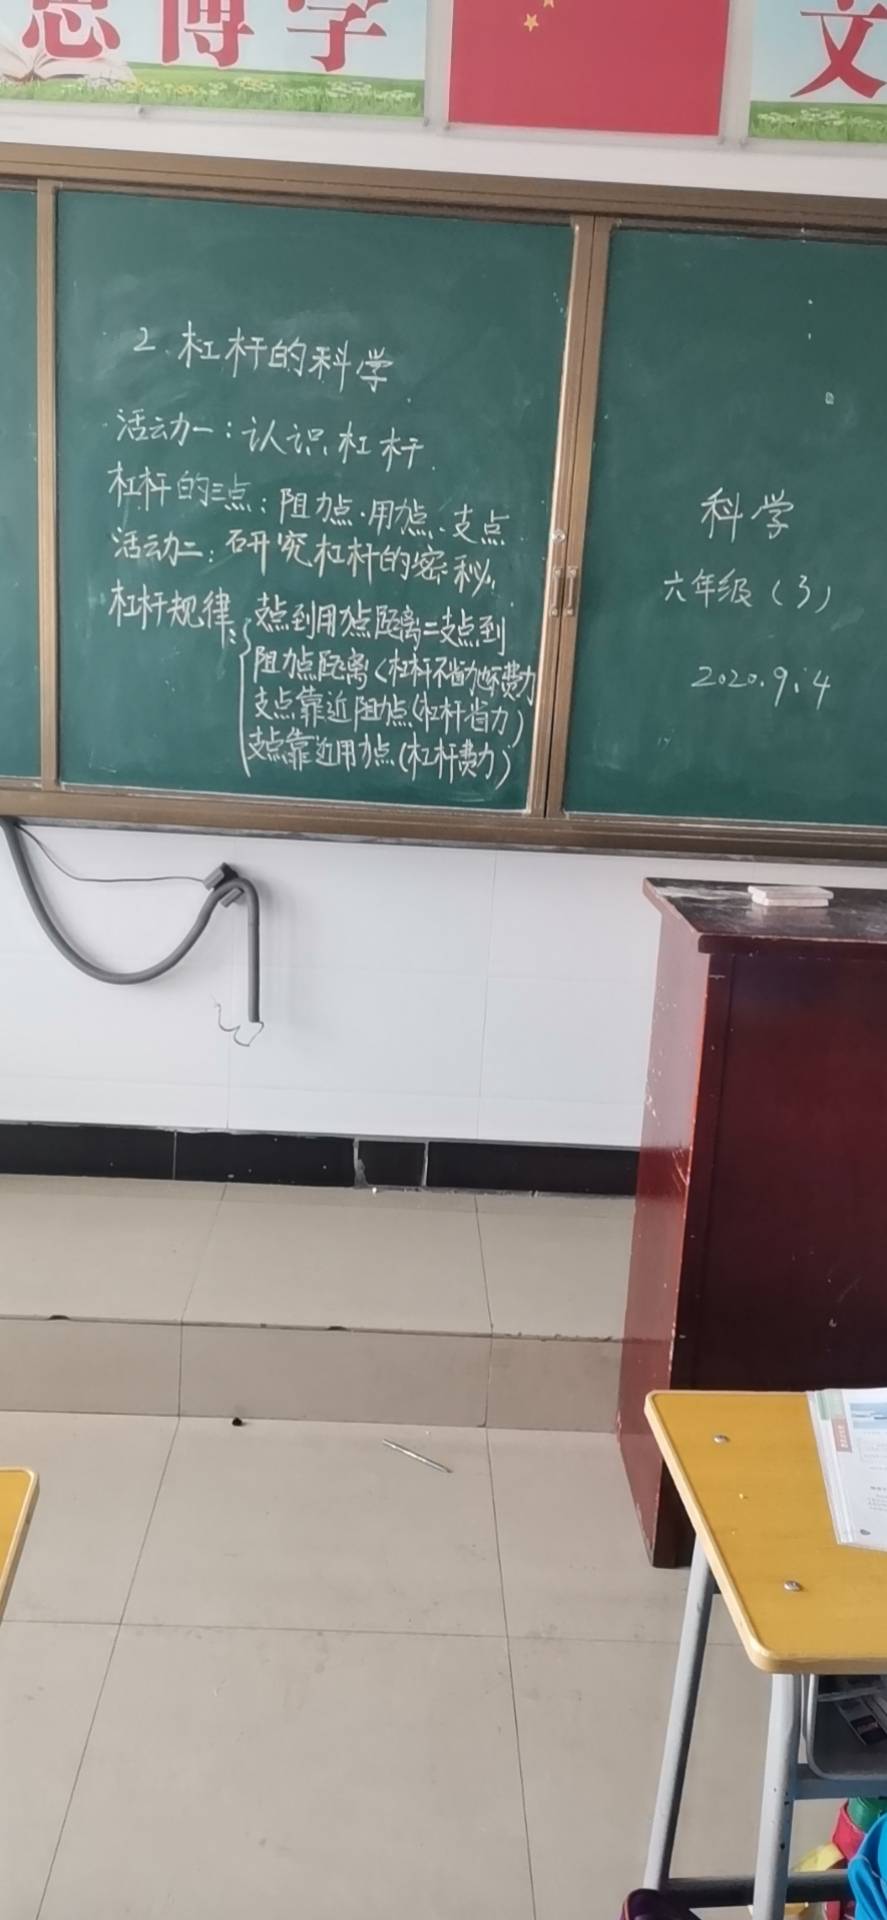 博学
文
2.杠杆的科学
活动一:认识杠杆.
杠杆的三点:阻力点.用力点.支点
活动二:研究杠杆的密秘.
杠杆规律:支点到用力点距离=支点到
阻力点距离(杠杆不省力也不费力
支点靠近阻力点(杠杆省力)
支点靠近用力点(杠杆费力)
科学
六年级(3)
2020.9.4